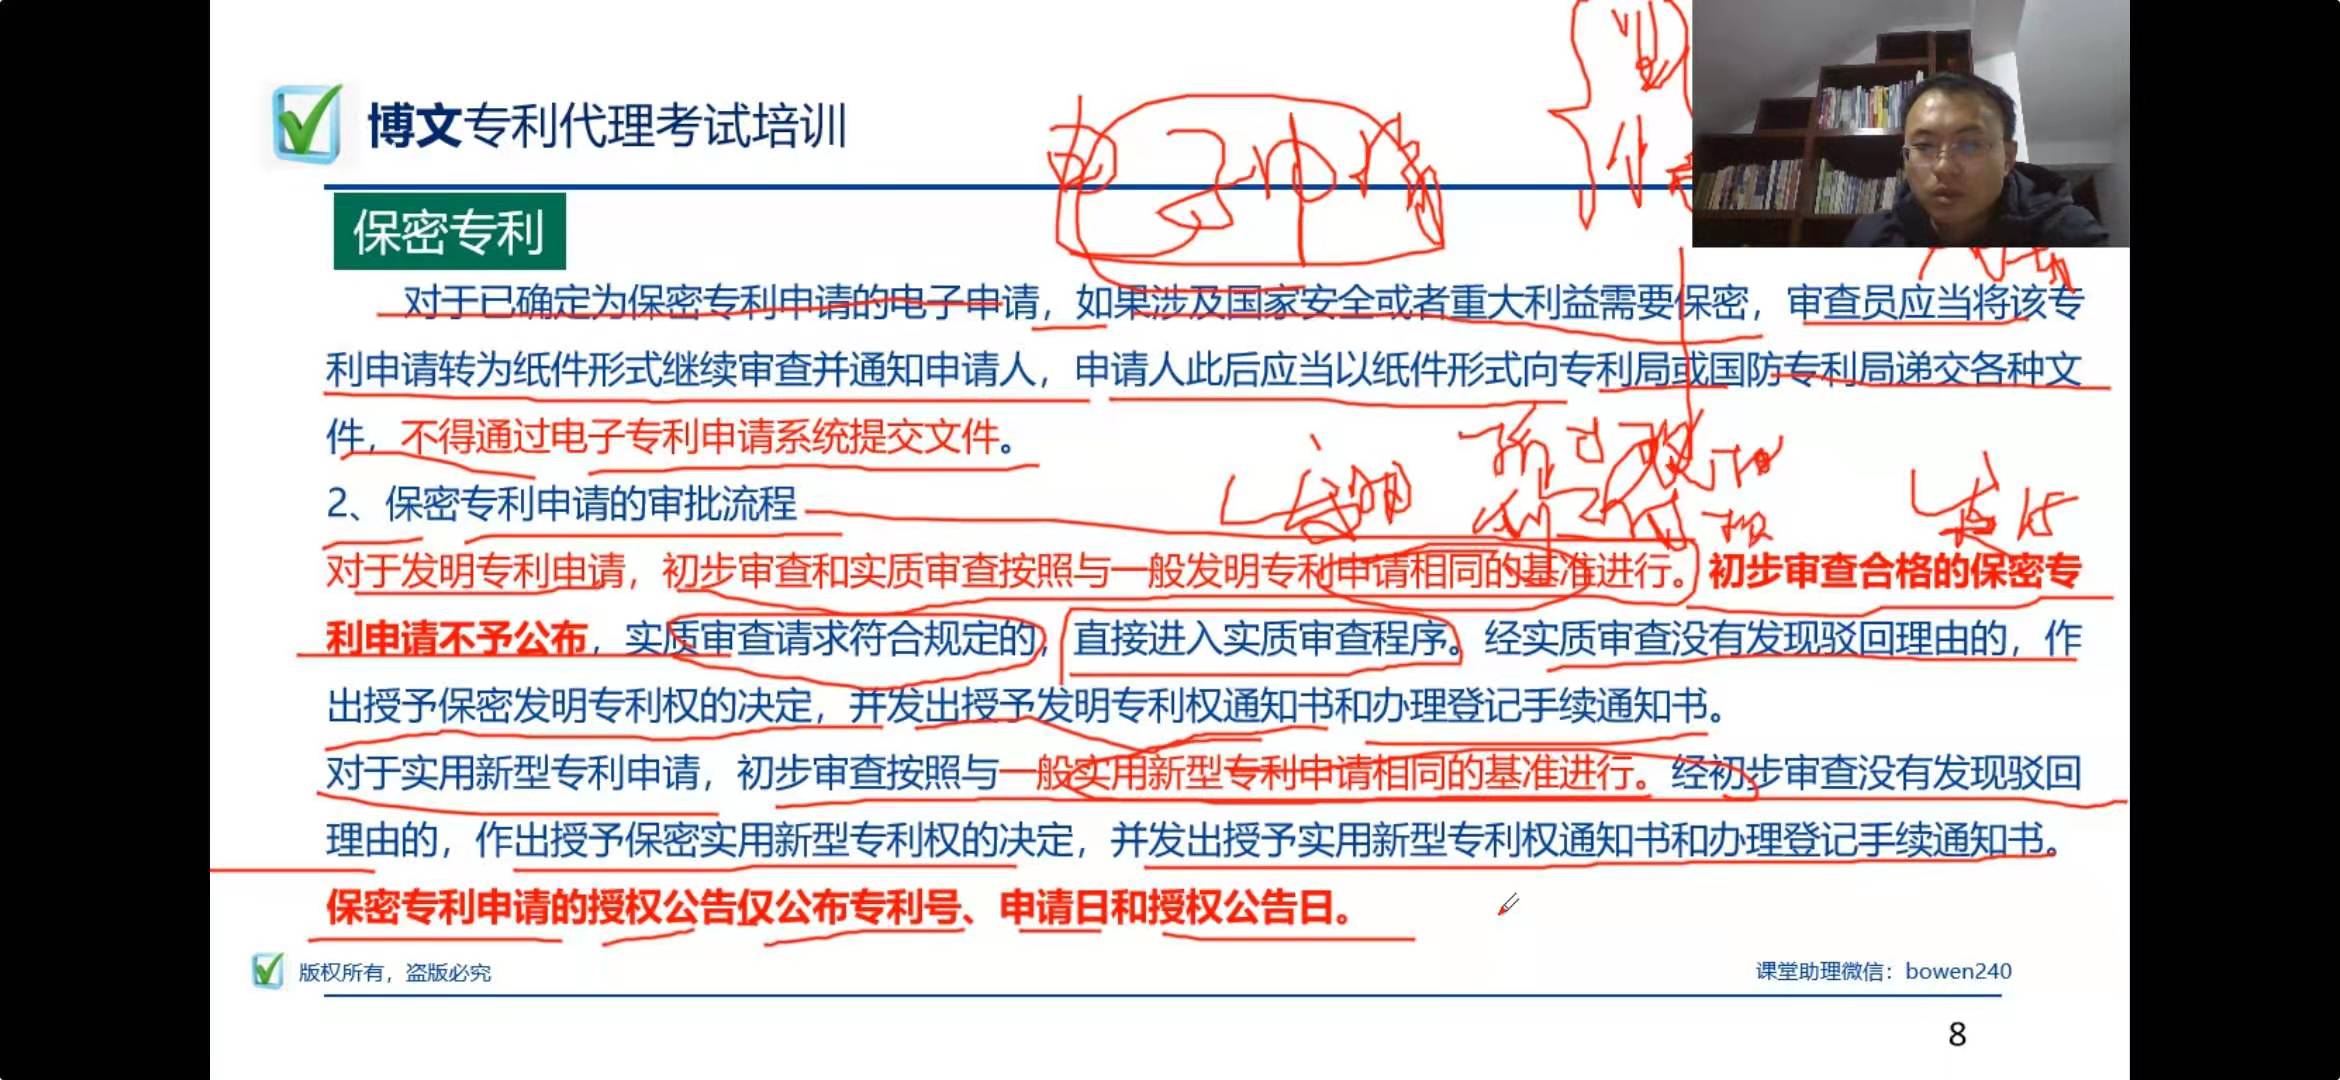 博文专利代理考试培训
保密专利
对于已确定为保密专利申请的电子申请，如果涉及国家安全或者重大利益需要保密，审查员应当将该专
利申请转为纸件形式继续审查并通知申请人，申请人此后应当以纸件形式向专利局或国防专利局递交各种文
件，不得通过电子专利申请系统提交文件。
2、保密专利申请的审批流程
对于发明专利申请，初步审查和实质审查按照与一般发明专利申请相同的基准进行。初步审查合格的保密专
利申请不予公布，实质审查请求符合规定的，直接进入实质审查程序。经实质审查没有发现驳回理由的，作
出授予保密发明专利权的决定，并发出授予发明专利权通知书和办理登记手续通知书。
对于实用新型专利申请，初步审查按照与一般实用新型专利申请相同的基准进行。经初步审查没有发现驳回
理由的，作出授予保密实用新型专利权的决定，并发出授予实用新型专利权通知书和办理登记手续通知书。
保密专利申请的授权公告仅公布专利号、申请日和授权公告日。
版权所有，盗版必究
课堂助理微信：bowen240
8